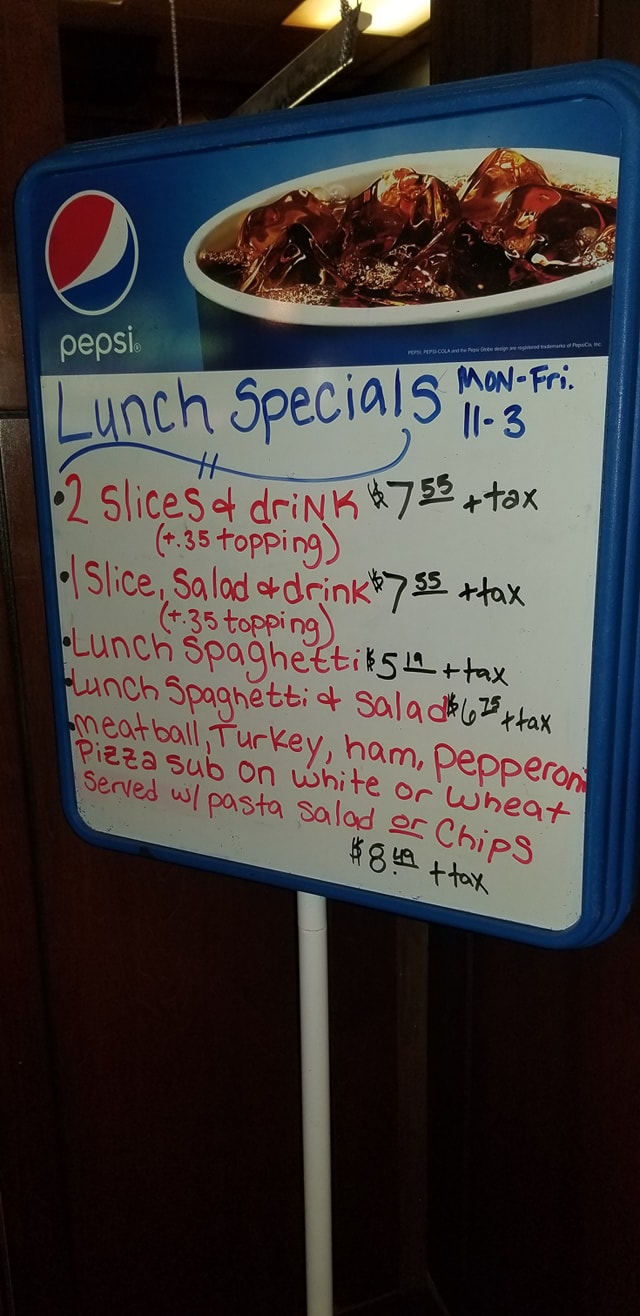 pepsi®
PEPSI, PEPSI-COLA and the Pepsi Globe design are registered trademarks of PepsiCo, Inc.
Lunch Specials MON-Fri.
11-3
•2 Slices & driNK $7 55 + tax
(+.35 topping)
•1 Slice, Salad & drink $7 55 + tax
(+.35 topping)
•Lunch Spaghetti $5 19 + tax
•Lunch Spaghetti & Salad $6 75 + tax
•meatball, Turkey, ham, Pepperoni
Pizza sub on white or wheat
Served w/ pasta salad or Chips
$8.49 + tax